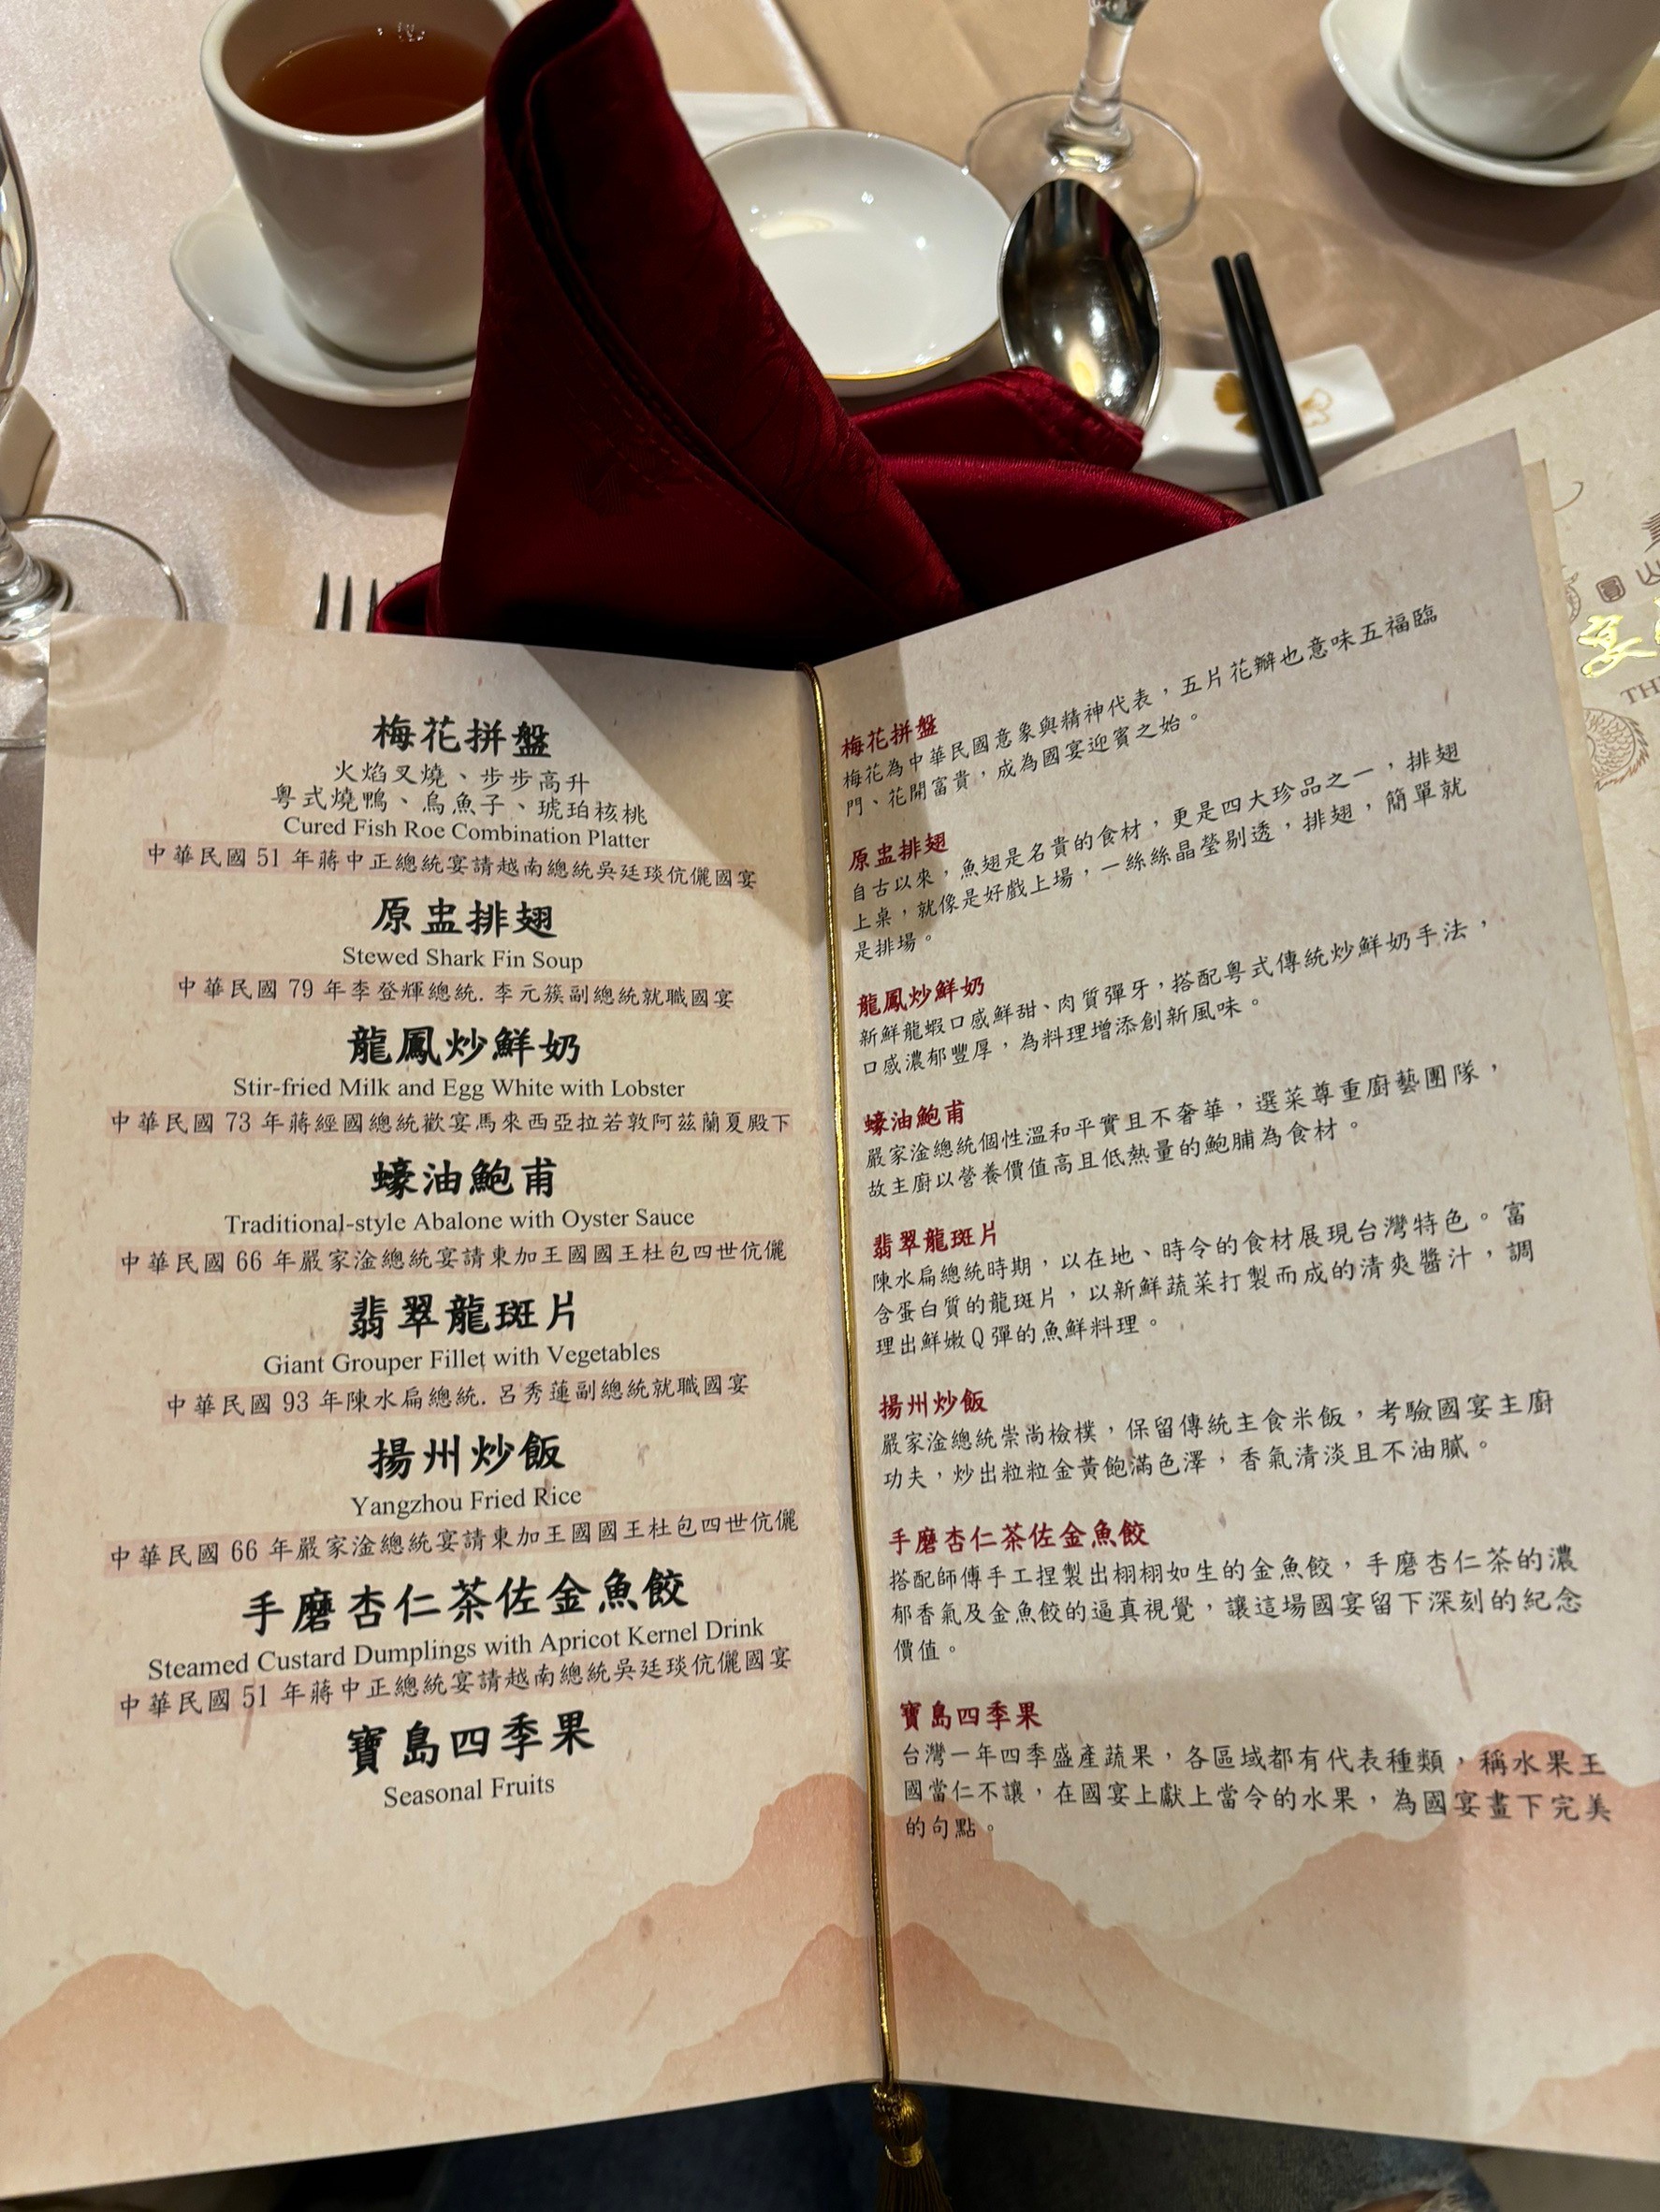 梅花拼盤
火焰叉燒、步步高升
粵式燒鴨、烏魚子、琥珀核桃
Cured Fish Roe Combination Platter
中華民國 51 年蔣中正總統宴請越南總統吳廷琰伉儷國宴
原盅排翅
Stewed Shark Fin Soup
中華民國 79 年李登輝總統. 李元簇副總統就職國宴
龍鳳炒鮮奶
Stir-fried Milk and Egg White with Lobster
中華民國 73 年蔣經國總統歡宴馬來西亞拉若敦阿茲蘭夏殿下
蠔油鮑甫
Traditional-style Abalone with Oyster Sauce
中華民國 66 年嚴家淦總統宴請東加王國國王杜包四世伉儷
翡翠龍斑片
Giant Grouper Fillet with Vegetables
中華民國 93 年陳水扁總統. 呂秀蓮副總統就職國宴
揚州炒飯
Yangzhou Fried Rice
中華民國 66 年嚴家淦總統宴請東加王國國王杜包四世伉儷
手磨杏仁茶佐金魚餃
Steamed Custard Dumplings with Apricot Kernel Drink
中華民國 51 年蔣中正總統宴請越南總統吳廷琰伉儷國宴
寶島四季果
Seasonal Fruits
梅花拼盤
梅花為中華民國意象與精神代表，五片花瓣也意味五福臨
門、花開富貴，成為國宴迎賓之始。
原盅排翅
自古以來，魚翅是名貴的食材，更是四大珍品之一，排翅
上桌，就像是好戲上場，一絲絲晶瑩剔透，排翅，簡單就
是排場。
龍鳳炒鮮奶
新鮮龍蝦口感鮮甜、肉質彈牙，搭配粵式傳統炒鮮奶手法，
口感濃郁豐厚，為料理增添創新風味。
蠔油鮑甫
嚴家淦總統個性溫和平實且不奢華，選菜尊重廚藝團隊，
故主廚以營養價值高且低熱量的鮑脯為食材。
翡翠龍斑片
陳水扁總統時期，以在地、時令的食材展現台灣特色。富
含蛋白質的龍斑片，以新鮮蔬菜打製而成的清爽醬汁，調
理出鮮嫩Q彈的魚鮮料理。
揚州炒飯
嚴家淦總統崇尚檢樸，保留傳統主食米飯，考驗國宴主廚
功夫，炒出粒粒金黃飽滿色澤，香氣清淡且不油膩。
手磨杏仁茶佐金魚餃
搭配師傅手工捏製出栩栩如生的金魚餃，手磨杏仁茶的濃
郁香氣及金魚餃的逼真視覺，讓這場國宴留下深刻的紀念
價值。
寶島四季果
台灣一年四季盛產蔬果，各區域都有代表種類，稱水果王
國當仁不讓，在國宴上獻上當令的水果，為國宴畫下完美
的句點。
圓山
宴
TH